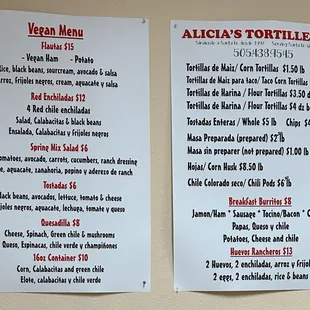 Vegan Menu
Flautas $15
- Vegan Ham - Potato
Rice, black beans, sourcream, avocado & salsa
Arroz, Frijoles negros, cream, aguacate y salsa
Red Enchiladas $12
4 Red chile enchiladas
Salad, Calabacitas & black beans
Ensalada, Calabacitas y Frijoles negros
Spring Mix Salad $6
avocado, carrots, cucumbers, ranch dressing
aguacate, zanahoria, pepino y aderezo de ranch
Tostadas $6
black beans, avocado, lettuce, tomato & cheese
negros, aguacate, lechuga, tomate y queso
Quesadilla $8
Cheese, Spinach, Green chile & mushrooms
Queso, Espinacas, chile verde y champiñones
16oz Container $10
Corn, Calabacitas and green chile
Elote, calabacitas y chile verde
ALICIA'S TORTILLE
Tortillas de Maiz/ Corn Tortillas $1.50 lb
Tortillas de Maiz para taco/ Taco Corn Tortillas
Tortillas de Harina / Flour Tortillas $3.50 d
Tortillas de Harina / Flour Tortillas $4 dz b
Tostadas Enteras / Whole $5 lb Chips $
Masa Preparada (prepared) $2 lb
Masa sin preparer (not prepared) $1.00 lb
Hojas/ Corn Husk $8.50 lb
Chile Colorado seco/ Chili Pods $6 lb
Breakfast Burritos $8
Jamon/Ham * Sausage * Tocino/Bacon * C
Papas, Queso y chile
Potatoes, Cheese and chile
Huevos Rancheros $13
2 Huevos, 2 enchiladas, arroz y Frijol
2 eggs, 2 enchiladas, rice & beans